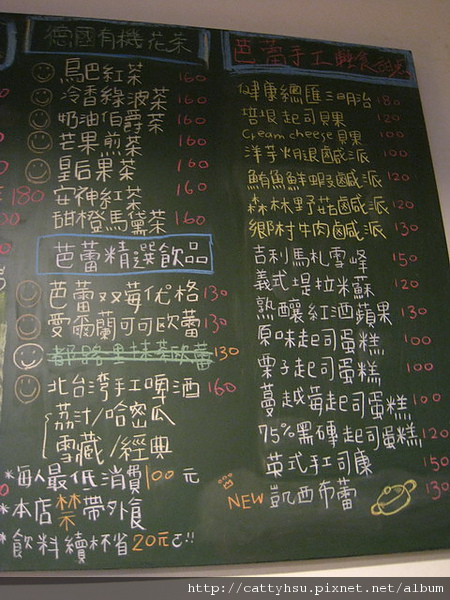 德國有機花茶
烏巴紅茶 160
冷香綠波茶 160
奶油伯爵茶 160
芒果煎茶 160
皇后果茶 160
安神紅茶 160
甜橙馬黛茶 160
芭蕾精選飲品
芭蕾双莓优格 130
愛爾蘭可可歐蕾 130
130
北台灣手工啤酒 160
荔汁/哈密瓜
雪藏/經典
*每人最低消費100元
*本店禁帶外食
*飲料續杯省20元!!
芭蕾手工輕食
健康總匯三明治 180
培根起司貝果 120
Cream cheese貝果 100
洋芋燻腿鹹派 100
鮪魚鮮蝦鹹派 120
森林野菇鹹派 120
鄉村牛肉鹹派 130
吉利馬札雪峰 150
義式堤拉米蘇 120
熟釀紅酒蘋果 130
原味起司蛋糕 100
栗子起司蛋糕 100
蔓越莓起司蛋糕 100
75%黑磚起司蛋糕 120
英式手工司康 150
NEW 凱西布蕾 130
http://cattyhsu.pixnet.net/album